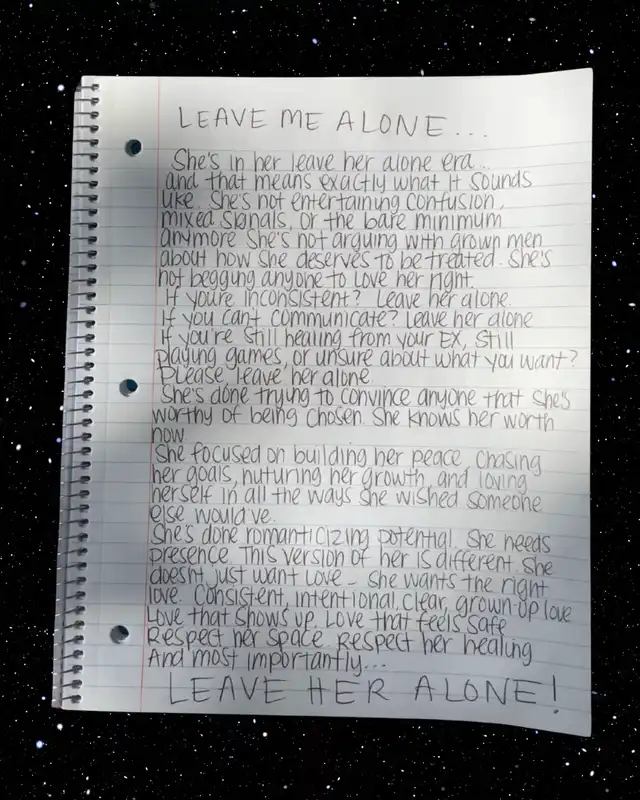 LEAVE ME ALONE...
She's in her leave her alone era...
and that means exactly what it sounds
like. She's not entertaining confusion,
mixed signals, or the bare minimum
anymore. She's not arguing with grown men
about how she deserves to be treated. She's
not begging anyone to love her right.
If you're inconsistent? Leave her alone.
If you can't communicate? Leave her alone
If you're still healing from your EX, still
playing games, or unsure about what you want?
Please, leave her alone.
She's done trying to convince anyone that she's
worthy of being chosen. She knows her worth
now.
She focused on building her peace, chasing
her goals, nuturing her growth, and loving
herself in all the ways she wished someone
else would've.
She's done romanticizing potential. She needs
presence. This version of her is different. She
doesn't just want love - she wants the right
love. Consistent, intentional, clear, grown-up love
Love that shows up. Love that feels safe.
Respect her space. Respect her healing
And most importantly...
LEAVE HER ALONE!